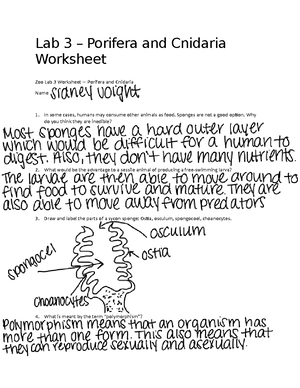 Lab 3 – Porifera and Cnidaria
Worksheet
Zoo Lab 3 Worksheet — Porifera and Cnidaria
Name sidney voight
1. In some cases, humans may consume other animals as food. Sponges are not a good option. Why
do you think they are inedible?
Most sponges have a hard outer layer
which would be difficult for a human to
digest. Also, they don't have many nutrients.
2. What would be the advantage to a sessile animal of producing a free-swimming larva?
The larvae are then able to move around to
find food to survive and mature. They are
also able to move away from predators
3. Draw and label the parts of a sycon sponge: Ostia, osculum, spongocoel, choanocytes.
osculum
ostia
spongocel
choanocytes
4. What is meant by the term "polymorphism"?
Polymorphism means that an organism has
more than one form. This also means that
they can reproduce sexually and asexually.